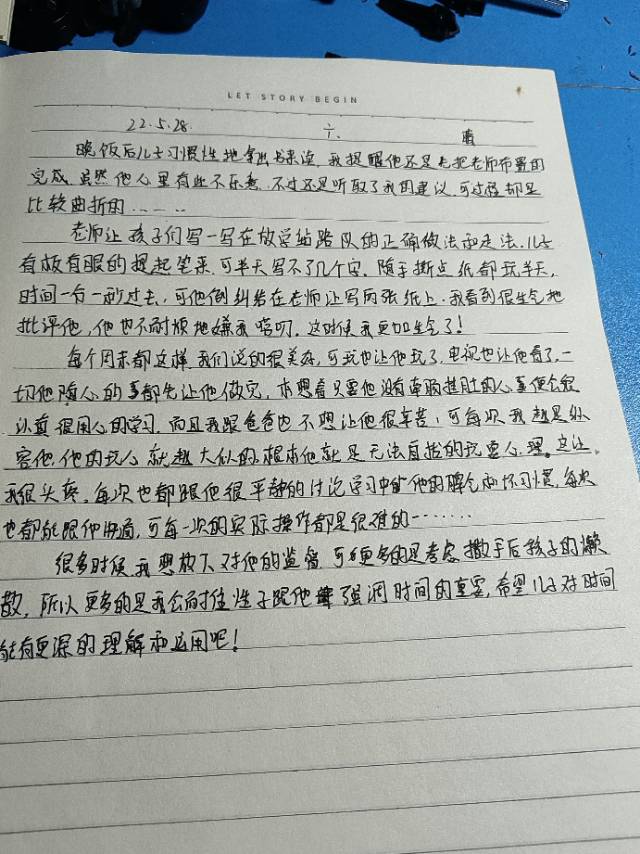 LET STORY BEGIN
22.5.28. 六. 晴
晚饭后儿子习惯性地拿出书来读，我提醒他还是先把老师布置的
完成，虽然他心里有些不乐意，不过还是听取了我的建议，可过程却是
比较曲折的……
老师让孩子们写一写在放学站路队的正确做法和走法，儿子
有板有眼的提起笔来，可半天写不了几个字，随手撕点纸都玩半天，
时间一分一秒过去，可他倒纠结在老师让写两张纸上，我看到很生气地
批评他，他也不耐烦地嫌我唠叨，这时候我更加生气了！
每个周末都这样，我们说的很美好，可玩也让他玩了，电视也让他看了，一
切他随心的事都先让他做完，本想着只要他没有牵肠挂肚的心事便会很
认真很用心的学习，而且我跟爸爸也不想让他很辛苦，可每次我越是纵
容他，他的玩心就越大似的，根本他就是无法自拔的玩耍心理。这让
我很头疼，每次也都跟他很平静的讨论学习中他的脾气和坏习惯，每次
也都能跟他沟通，可每一次的实际操作都是很难的……
很多时候我想放下对他的监督，可更多的是考虑撒手后孩子的懒
散，所以更多的是我会耐住性子跟他强调时间的重要，希望儿子对时间
能有更深的理解和运用吧！